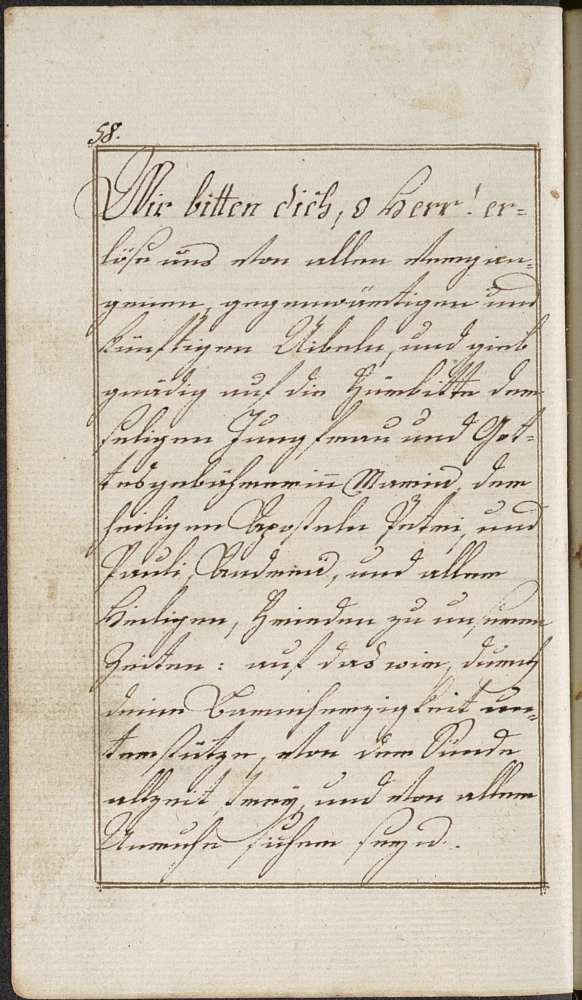 58.
Wir bitten dich, o Herr! er=
löse uns von allen vergan=
genen, gegenwärtigen und
künftigen Uibeln, und gieb
gnädig auf die Fürbitte der
seligen Jungfrau und Got=
tesgebährerin Mariä, der
heiligen Aposteln Petri, und
Pauli, Andreä, und aller
Heiligen, Frieden zu unseren
Zeiten: auf das wir, durch
deine Barmherzigkeit un=
terstütze, von der Sünde
allzeit frey, und von aller
Unruhe sicher seyd.